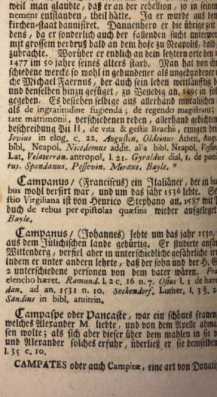 weil man glaubte, daß er an der rebellion, so in seinem
nement entstanden, theil hätte. Ja er wurde auf
kirchen-staat bannisiret. Dannenhero er die übrige zeit
bens, da er sonderlich auch der fallenden sucht unterworfen
mit grossem verdruß bald an dem hofe zu Neapolis, bald
zubrachte. Worüber er endlich an dem letzten orte
1477 im 50 jahre seines alters starb. Man hat von
schiedene wercke so wohl in gebundener als ungebundener
che Michael Fernus, der auch sein leben weitläufftig
und denselben hinzu gefüget, zu Venedig an. 1495 in fol.
gegeben. Es bestehen selbige aus allerhand moralischen
als de ingratitudine fugienda; de regendo magistratu;
tate matrimonii, verschiedenen reden, allerhand gedichten
beschreibung Pii II, de vita & gestis Brachii,
Jovius in elog. c. 22. Augustin. Oldoinus Athen. Aug.
bibl. Neapol. Nicodemus addit. all a bibl. Neapol.
Lat. Volaterran. antropol. l. 21. Gyraldus dial. 1. de
rus. Spondanus. Possevin. Miraus. Bayle.*
Campanus (Franciscus) ein Italiäner, der in
bus wohl versirt war, und um das jahr 1536 lebte.
stio Virgiliana ist von Henrico Stephano an. 1587 mit
buch de rebus per epistolas quæsitis wieder aufgelegt
Bayle.
Campanus / (Johannes) lebte um das jahr 1530,
aus dem Jülichischen lande gebürtig. Er studirte anfangs
Wittenberg, verfiel aber in unterschiedliche gefährliche
indem er unter andern lehrte, daß der sohn und der H.
2 unterschiedene personen von dem vater wären.
elencho hæret. Ramund. l. 2 c. 16 n. 7. Opus l. 1 de
dan. ad an. 1531 n. 10. Seckendorf. Luther. l. 3 §.
Sandius in bibl. antitrin.
Campaspe oder Pancaste, war ein schönes frauenzimmer
welches Alexander M. liebte, und von dem Apelle
sen wolte; als sich aber dieser über dem mahlen in sie
und Alexander solches erfuhr, überließ er sie demselben
l. 35 c. 10.
CAMPATES oder auch Campitæ, eine art von Donatisten